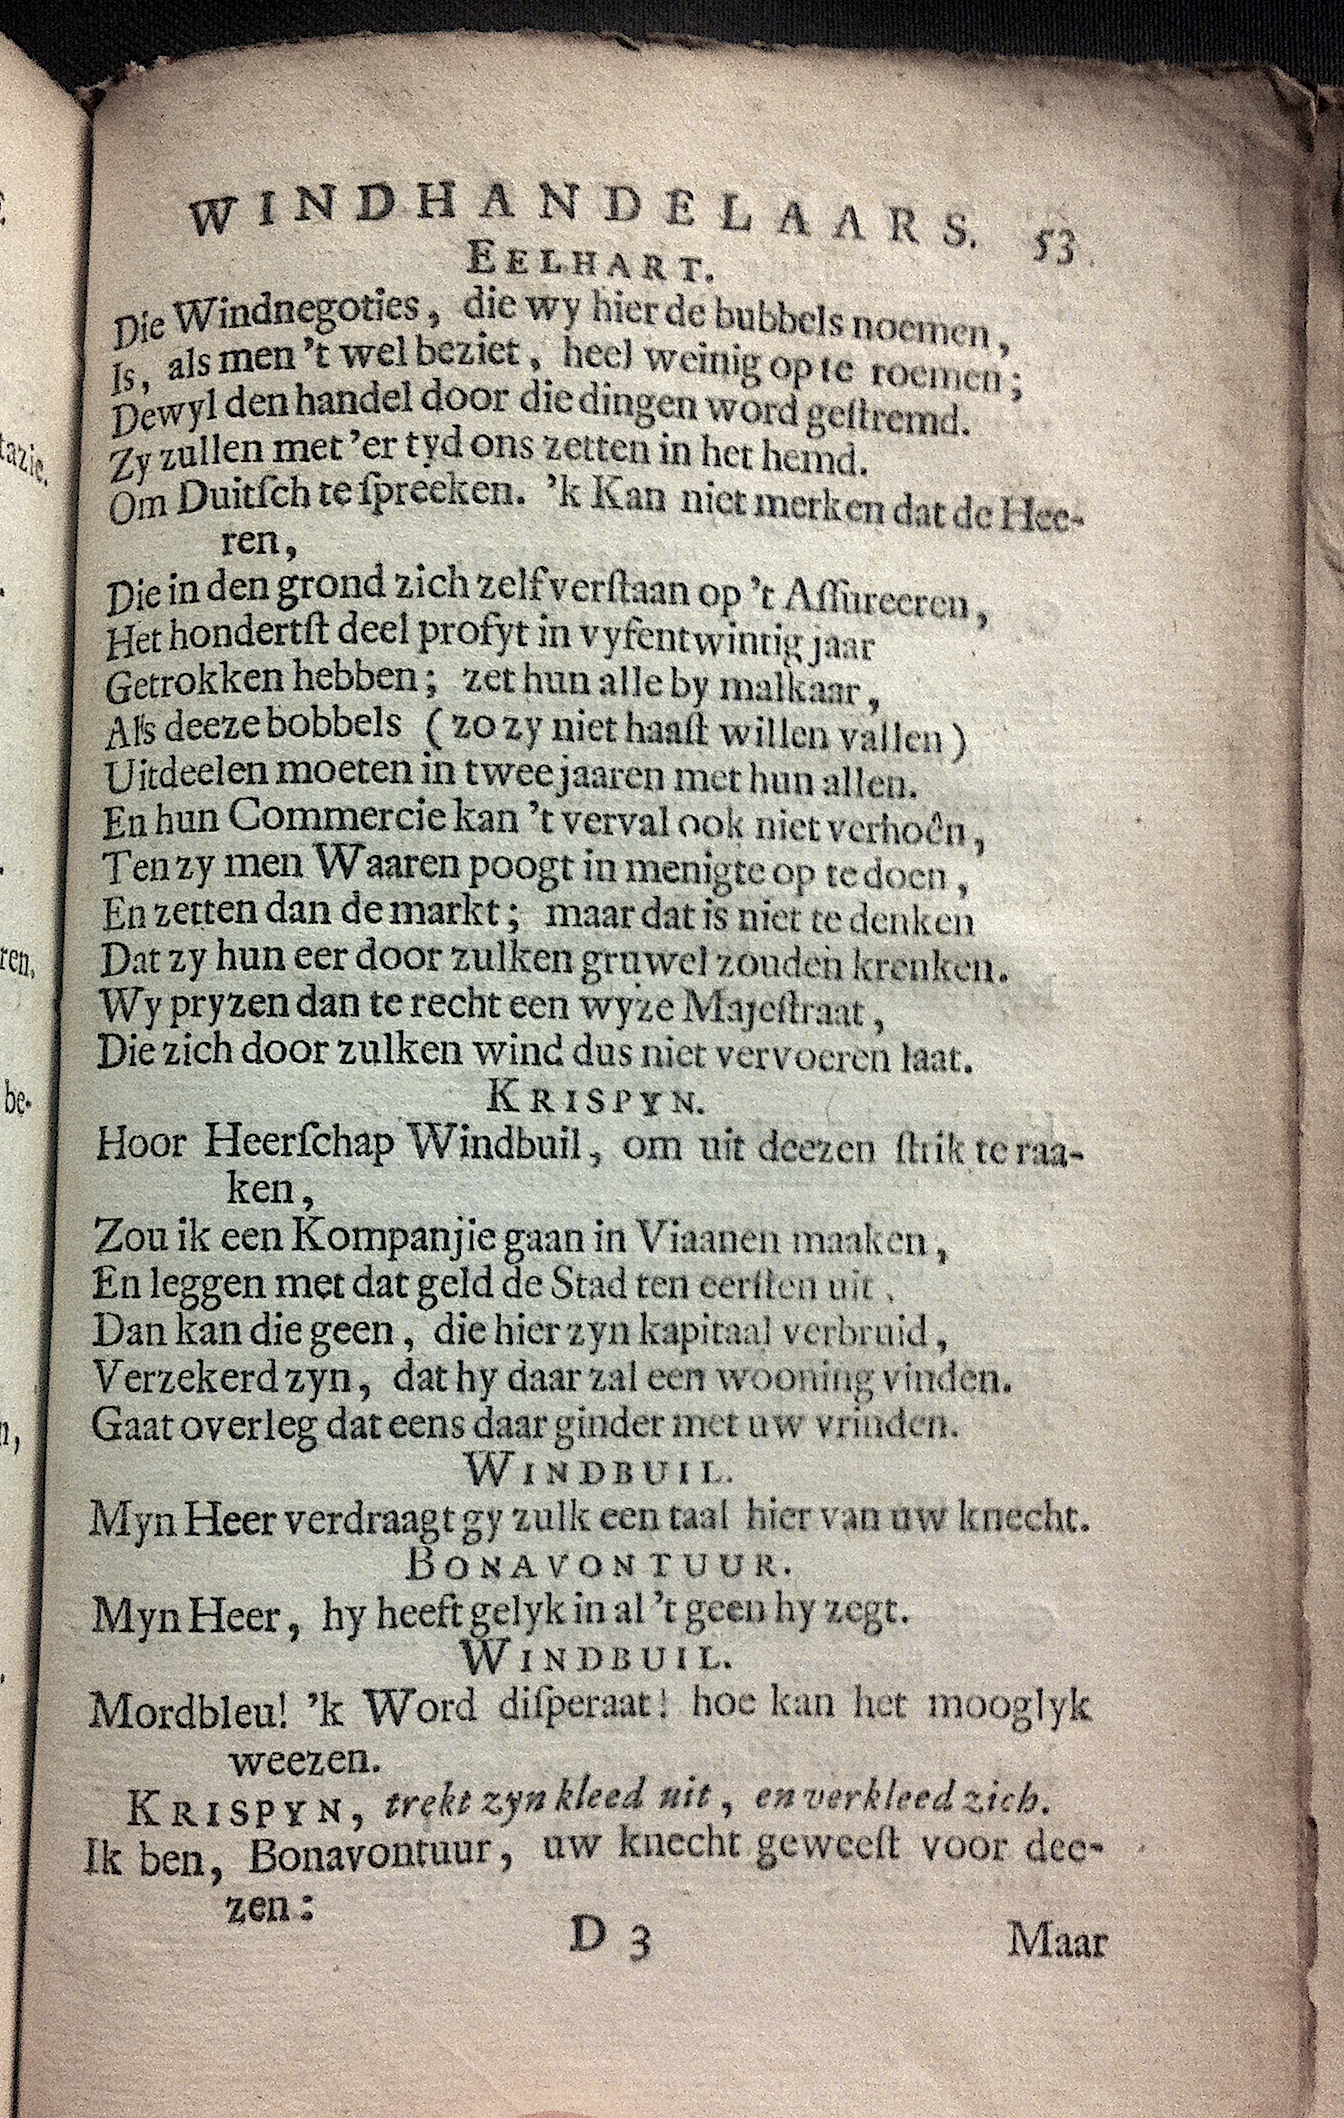 WINDHANDELAARS. 53
EELHART.
Die Windnegoties, die wy hier de bubbels noemen,
Is, als men 't wel beziet, heel weinig op te roemen;
Dewyl den handel door die dingen word geſtremd.
Zy zullen met 'er tyd ons zetten in het hemd.
Om Duitſch te ſpreeken. 'k Kan niet merken dat de Hee-
ren,
Die in den grond zich zelf verſtaan op 't Aſſureeren,
Het hondertſt deel profyt in vyfentwintig jaar
Getrokken hebben; zet hun alle by malkaar,
Als deeze bobbels (zo zy niet haaſt willen vallen)
Uitdeelen moeten in twee jaaren met hun allen.
En hun Commercie kan 't verval ook niet verhoên,
Ten zy men Waaren poogt in menigte op te doen,
En zetten dan de markt; maar dat is niet te denken
Dat zy hun eer door zulken gruwel zouden krenken.
Wy pryzen dan te recht een wyze Majeſtraat,
Die zich door zulken wind dus niet vervoeren laat.
KRISPYN.
Hoor Heerſchap Windbuil, om uit deezen ſtrik te raa-
ken,
Zou ik een Kompanjie gaan in Viaanen maaken,
En leggen met dat geld de Stad ten eerſten uit,
Dan kan die geen, die hier zyn kapitaal verbruid,
Verzekerd zyn, dat hy daar zal een wooning vinden.
Gaat overleg dat eens daar ginder met uw vrinden.
WINDBUIL.
Myn Heer verdraagt gy zulk een taal hier van uw knecht.
BONAVONTUUR.
Myn Heer, hy heeft gelyk in al 't geen hy zegt.
WINDBUIL.
Mordbleu! 'k Word diſperaat! hoe kan het mooglyk
weezen.
KRISPYN, trekt zyn kleed uit, en verkleed zich.
Ik ben, Bonavontuur, uw knecht geweeſt voor dee-
zen:
D 3 Maar